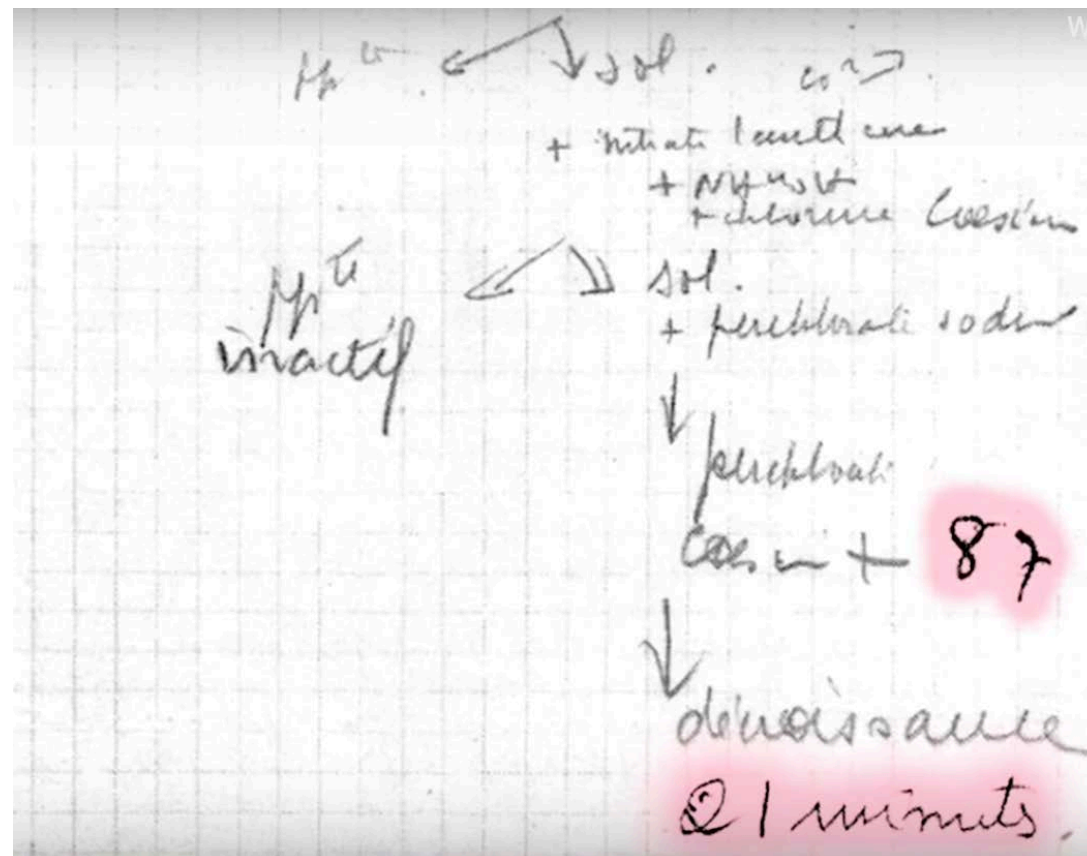 W
ppté sol. CO₃²⁻
+ nitrate lanthane
+ NH4OH
+ chlorure Coesium
ppté sol.
inactif + perchlorate sodium
perchlorate
Coesium + 87
décroissance
21 minutes.